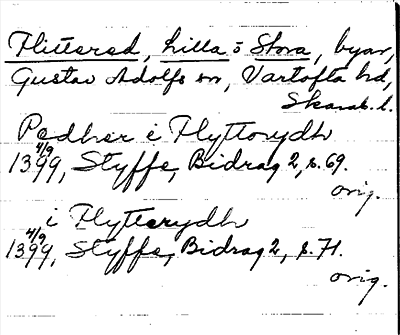 Flittered, Lilla o Stora, byar,
Gustav Adolfs sn, Vartofta hd,
Skarab. l.
Pedher i Flyttorydh
4/9
1399, Styffe, Bidrag 2, s. 69.
orig.
i Flytterydh
4/9
1399, Styffe, Bidrag 2, s. 71.
orig.